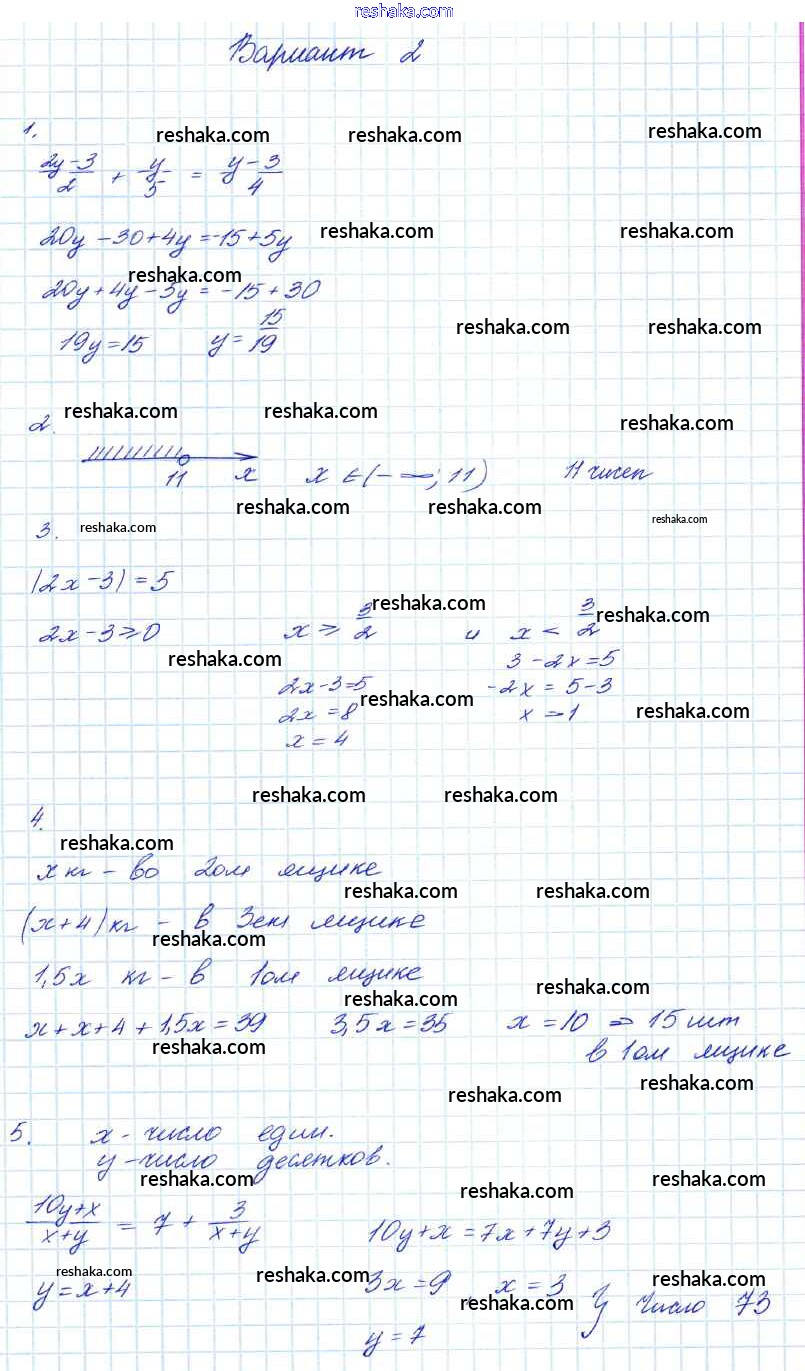 reshaka.com
Вариант 2
1.
reshaka.com reshaka.com reshaka.com
(2y-3)/2 + y/5 = (y-3)/4
20y - 30 + 4y = -15 + 5y reshaka.com reshaka.com
reshaka.com
20y + 4y - 5y = -15 + 30
19y = 15 y = 15/19 reshaka.com reshaka.com
2. reshaka.com reshaka.com reshaka.com
11 x x ∈ (-∞; 11) 11 чисел
reshaka.com reshaka.com
3. reshaka.com reshaka.com
|2x - 3| = 5
2x - 3 ≥ 0 x ≥ 3/2 reshaka.com и x < 3/2 reshaka.com
reshaka.com 3 - 2x = 5
2x - 3 = 5 reshaka.com -2x = 5 - 3
2x = 8 x = -1 reshaka.com
x = 4
reshaka.com reshaka.com
4.
reshaka.com
x кг - во 2ом ящике
reshaka.com reshaka.com
(x + 4) кг - в 3ем ящике
reshaka.com
1,5x кг - в 1ом ящике
reshaka.com reshaka.com
x + x + 4 + 1,5x = 39 3,5x = 35 x = 10 ⇒ 15 шт
reshaka.com в 1ом ящике
reshaka.com reshaka.com
5. x - число един.
y - число десятков.
reshaka.com reshaka.com reshaka.com
(10y+x)/(x+y) = 7 + 3/(x+y) 10y + x = 7x + 7y + 3
reshaka.com reshaka.com reshaka.com
y = x + 4 3x = 9 x = 3 } Число 73
reshaka.com reshaka.com
y = 7